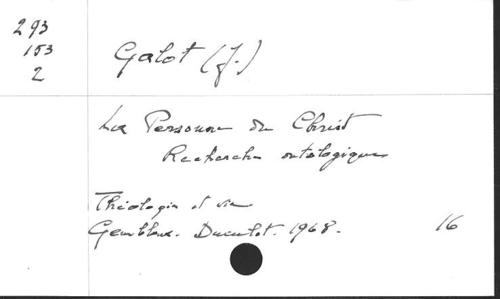 293
153
2
Galot (J.)
La Personne du Christ
Recherche ontologique
Théologie et vie
Gembloux. Duculot. 1968.
16